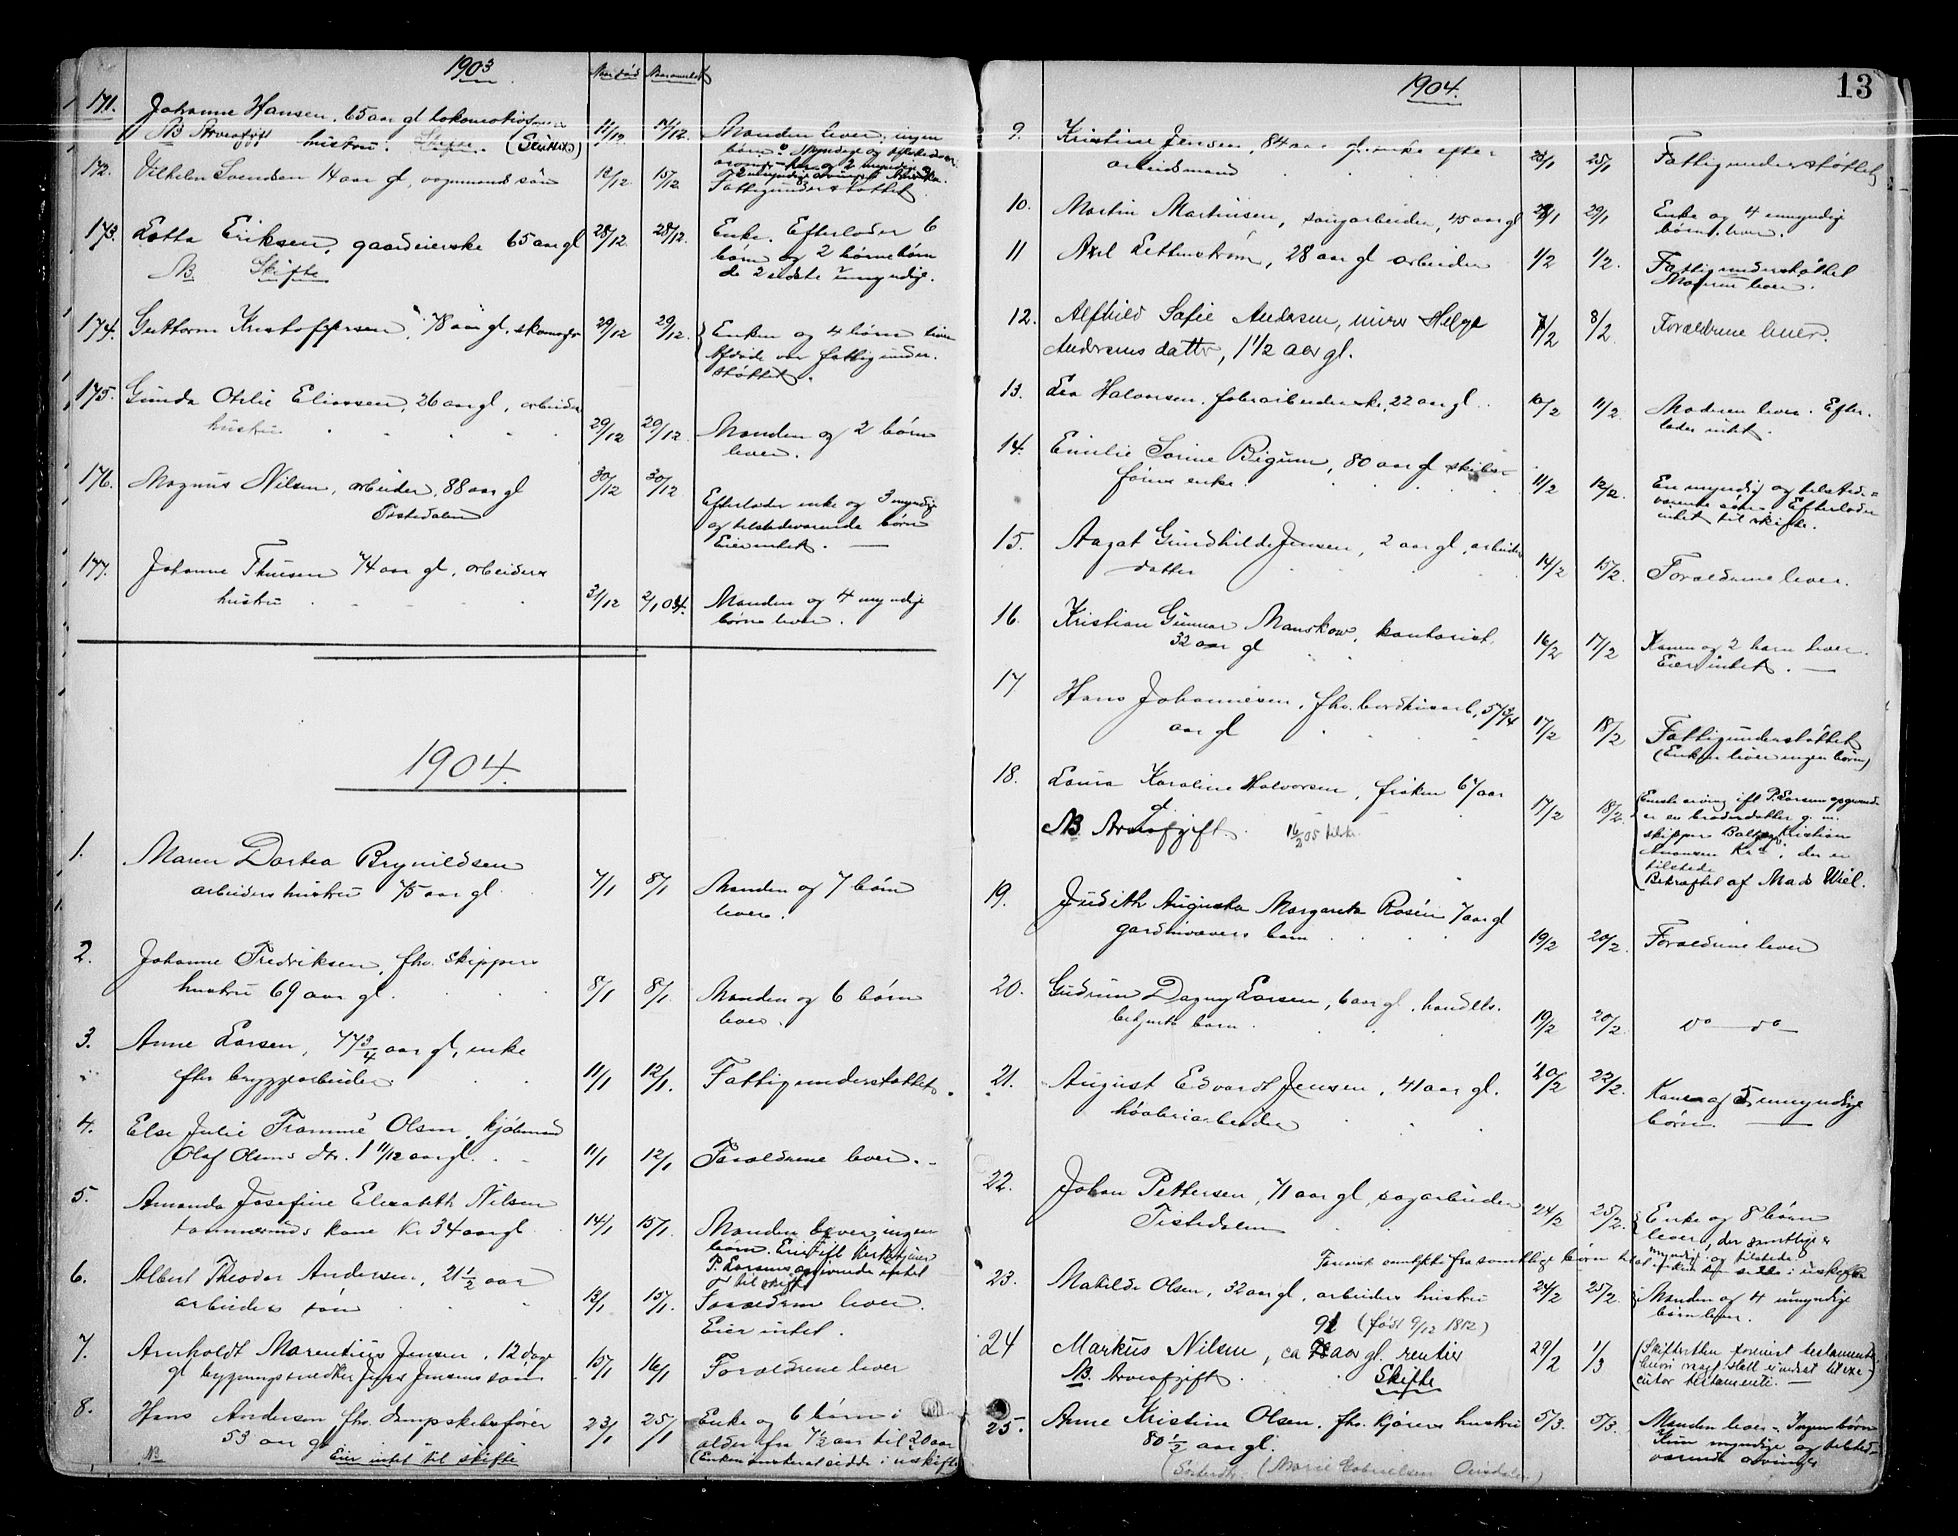 1903
171. Johanne Hansen, 65 aar gl. lokomotiv
NB Arveafgift hustru. Skifte. 11/12 14/12. Manden lever, ingen
børn.
172. Vilhelm Svendsen 14 aar gl, vognmands søn 12/12 15/12.
Fattigunderstøttet
173. Lotta Eriksen, gaardeierske 65 aar gl 28/12 28/12. Enke. Efterlader 6
børn og 2 børnebørn
NB Skifte
de 2 sidste umyndige.
174. Guttorm Kristoffersen, 78 aar gl. skomager 29/12 29/12. Enken og 4 børn lever
Afdøde var fattigunder-
støttet.
175. Gunda Otilie Eliassen, 26 aar gl, arbeider
hustru 29/12 29/12. Manden og 2 børn
lever.
176. Magnus Nilsen, arbeider, 88 aar gl 30/12 30/12
Tistedalen Efterlader enke og 3 myndige
og tilstedeværende børn
Eier intet.
177. Johanne Thuesen 74 aar gl, arbeiders
hustru 31/12 2/1 04. Manden og 4 myndige
børn lever.
1904.
1. Maren Dortea Brynildsen
arbeiders hustru 75 aar gl. 7/1 8/1 Manden og 7 børn
lever.
2. Johanne Fredriksen, fhv. skippers
hustru 69 aar gl. 8/1 8/1. Manden og 6 børn
lever.
3. Anne Larsen, 77 3/4 aar gl, enke
efter bryggearbeider 11/1 12/1. Fattigunderstøttet.
4. Else Julie Framme Olsen, kjøbmand
Olaf Olsens dtr. 1 11/12 aar gl. 11/1 12/1 Forældrene lever.
5. Amanda Josefine Elisabeth Nilsen
tømmermands kone 34 aar gl. 14/1 15/1. Manden lever, ingen
børn.
P. Larsens opgivende intet
til skifte
6. Albert Theodor Andersen, 21 1/2 aar
arbeiders søn 13/1 15/1. Forældrene lever.
Eier intet.
7. Arnholdt Marentius Jensen, 12 dage
gl bygningssnedker Jens Jensens søn 15/1 16/1 Forældrene lever
8. Hans Andersen fhv. dampskibsfører
53 aar gl 23/1 25/1 Enke og 6 børn i
alder fra 7 1/2 aar til 20 aar
NB Eier intet til skifte (Enken ønsker at sidde i uskifte
1904. 13
9. Kristine Jensen, 84 aar gl. enke efter
arbeidsmand 23/1 25/1 Fattigunderstøttet
10. Martin Martinsen, saugarbeider, 45 aar gl 29/1 Enke og 4 umyndige
børn lever.
11 Axel Zetterstrøm, 28 aar gl arbeider 1/2 1/2. Fattigunderstøttet
Moren lever.
12. Alfhild Sofie Andersen, murer Helge
Andersens datter, 1 1/2 aar gl. 7/2 8/2 Forældrene lever.
13. Lea Halvorsen, fabrikarbeiderske, 22 aar gl. 10/2 11/2. Moderen lever. Efter-
lader intet.
14. Emilie Sorine Bigum, 80 aar gl skibs-
førers enke. 11/2 12/2. En myndig og tilstede-
værende søn. Efterlader
intet til skifte.
15. Aagot Gundhilde Jensen, 2 aar gl, arbeider
datter 14/2 15/2. Forældrene lever.
16. Kristian Gunnar Manskow, kontorist
32 aar gl 16/2 17/2 Konen og 2 barn lever.
Eier intet.
17 Hans Johannesen, fhv. bordhusarb. 57 3/4
aar gl 17/2 18/2 Fattigunderstøttet
(Enken lever ingen børn)
18. Laura Karoline Halvorsen, frøken 67 aar
gl. 17/2 18/2. Eneste arving ifl P. Larsens opgivende
er en broderdatter g. m.
NB Arveafgift. 16/2 05 tilskr. skipper Kristian
der er
tilstede
Bekræftet af Mads Wiel.
19. Judith Augusta Margareta Rosén 7 aar gl
gardinvævers barn 19/2 20/2. Forældrene lever
20. Gudrun Dagny Larsen, 6 aar gl, handels-
betjents barn 19/2 20/2. do do
21. August Edvard Jensen, 41 aar gl.
høvleriarbeider 20/2 22/2. Kone og 5 umyndige
børn.
22. Johan Pettersen, 71 aar gl, sagarbeider
Tistedalen 24/2 25/2. Enke og 8 børn
lever, der samtlige er
myndige og tilstede
samtykke fra samtlige børn til at enken kan sidde i uskifte
23. Matilde Olsen, 32 aar gl, arbeiders hustru 24/2 25/2. Manden og 4 umyndige
børn lever.
91 (født 9/12 1812)
24 Markus Nilsen, ca aar gl. rentier 29/2 1/3 (Skifteretten forevist testamente
NB. Arveafgift. Skifte
cutor testamenti.
25. Anne Kristine Olsen, fhv. kjørers hustru 5/3. 5/3. Manden lever. Ingen børn
80 1/2 aar gl. Kun myndige og tilstede-
værende arvinger
(Søsterdtr. (Marie Gabrielsen